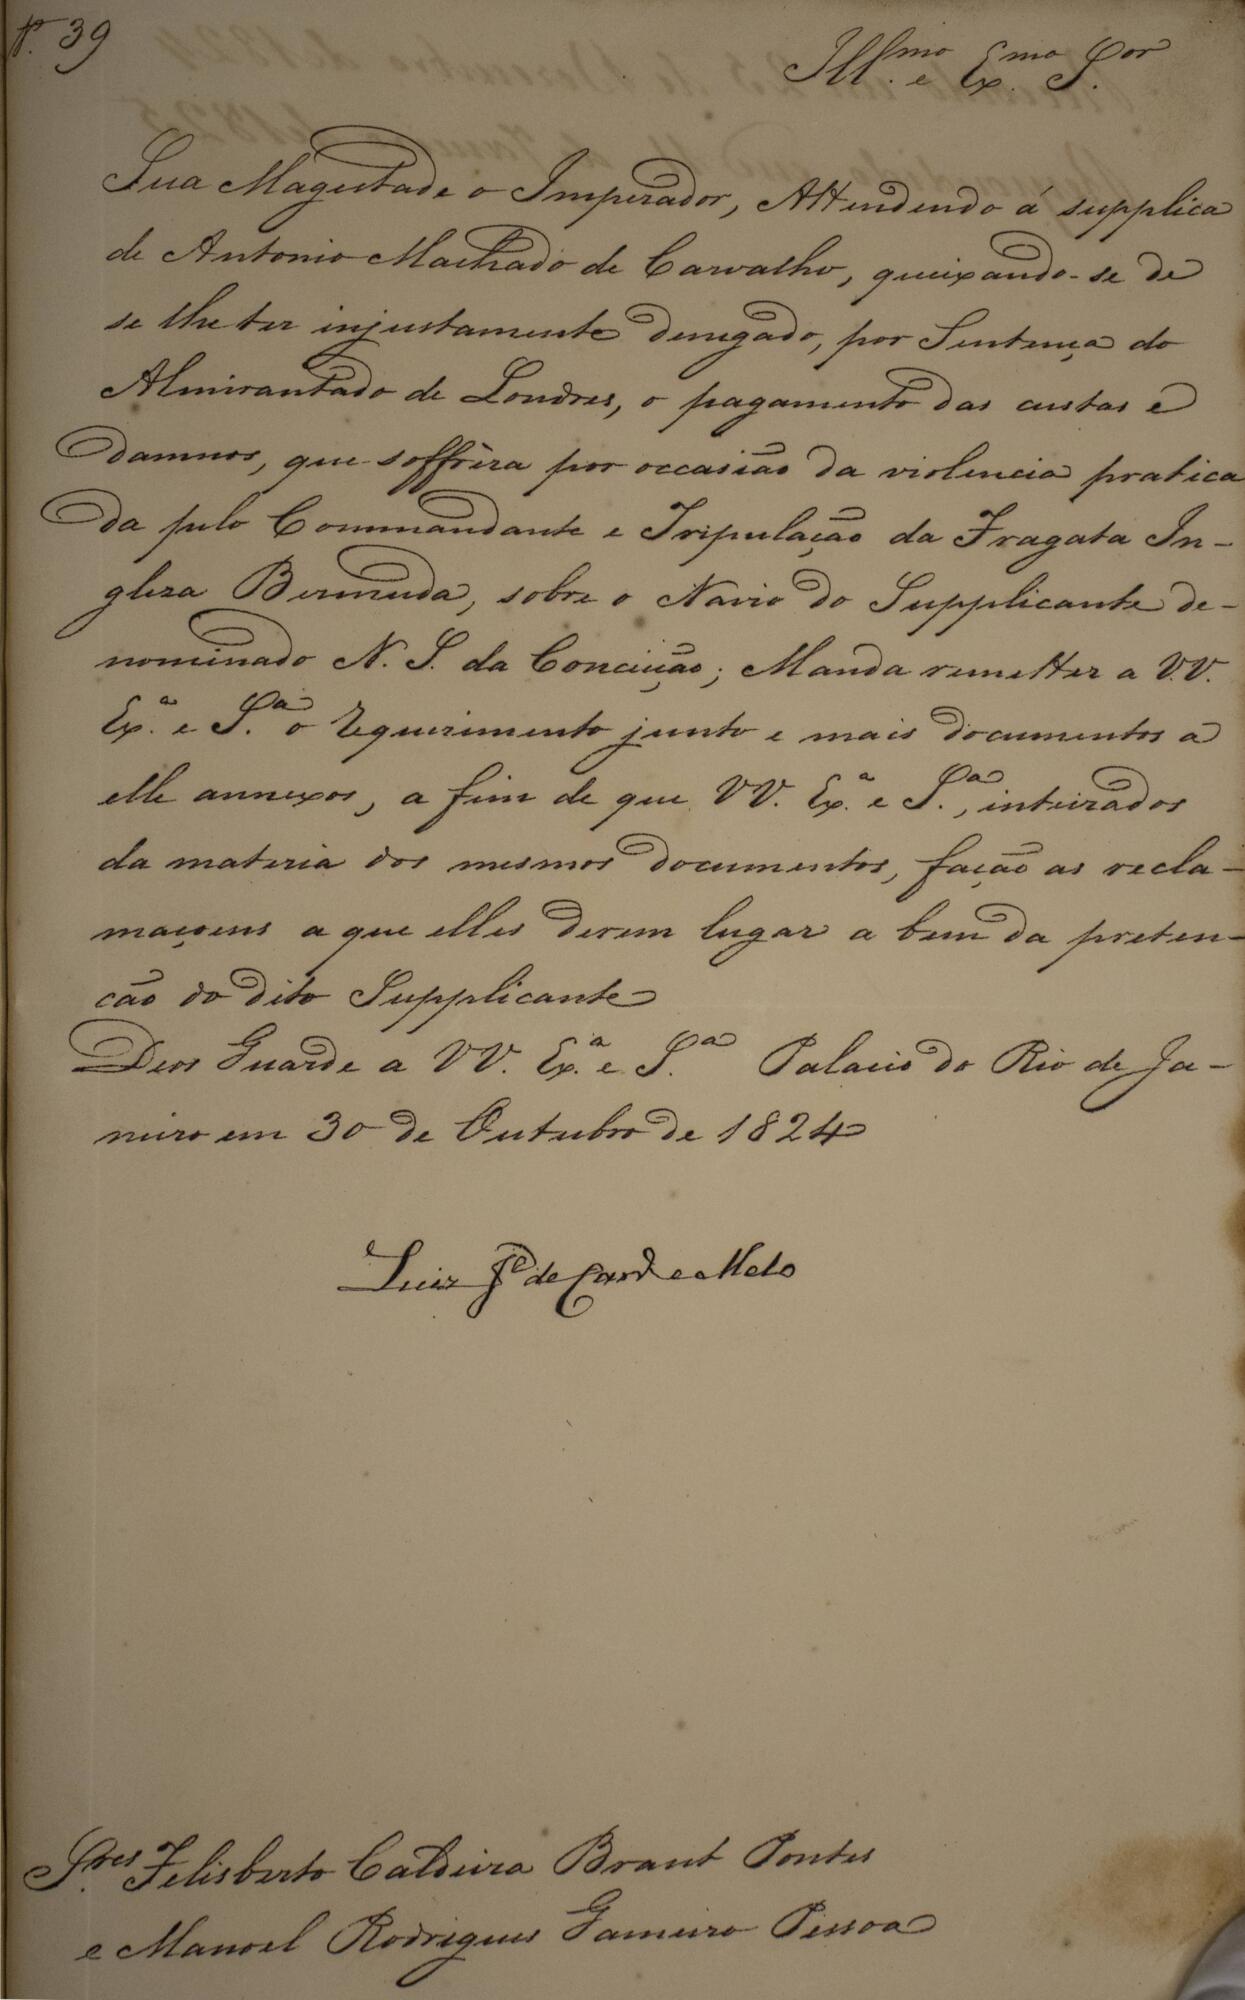 Nº. 39
Ill.mo e Ex.mo S.or
Sua Magestade o Imperador, Attendendo á supplica
de Antonio Machado de Carvalho, queixando-se de
se lhe ter injustamente denegado, por Sentença do
Almirantado de Londres, o pagamento das custas e
damnos, que soffrèra por occasião da violencia pratica
da pelo Commandante e Tripulação da Fragata In-
gleza Bermuda, sobre o Navio do Supplicante de-
nominado N. S. da Conceição; Manda remetter a V.V.
Ex.ª e S.ª o Requerimento junto e mais documentos a
elle annexos, a fim de que VV. Ex.ª e S.ª, inteirados
da materia dos mesmos documentos, fação as recla-
maçoens a que elles derem lugar a bem da preten-
ção do dito Supplicante
Deos Guarde a VV. Ex.ª e S.ª Palacio do Rio de Ja-
neiro em 30 de Outubro de 1824
Luiz Je de Carv.o e Mello
S.res Felisberto Caldeira Brant Pontes
e Manoel Rodrigues Gameiro Pessoa